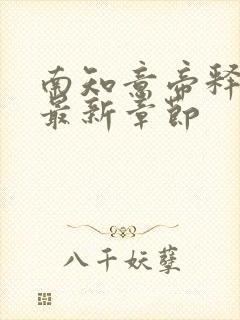 南知意帝释
最新章節
八千妖孽